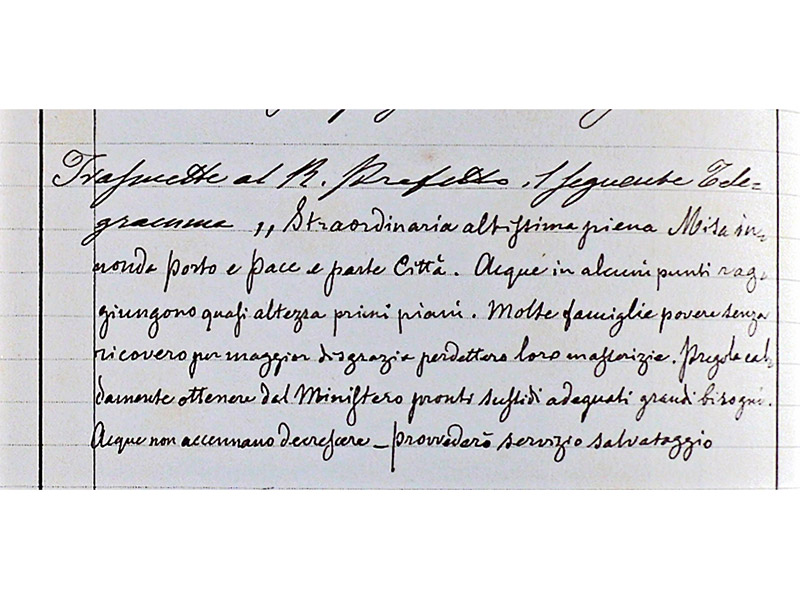 Trasmette al R. Prefetto, il seguente Tele=
gramma „ Straordinaria altissima piena Misa in=
nonda Porto e Pace e parte Città. Acque in alcuni punti rag=
giungono quasi altezza primi piani. Molte famiglie povere senza
ricovero per maggior disgrazia perdettero loro masserizie. Pregola cal=
damente ottenere dal Ministero pronti sussidi adeguati grandi bisogni.
Acque non accennano decrescere – provvederò servizio salvataggio